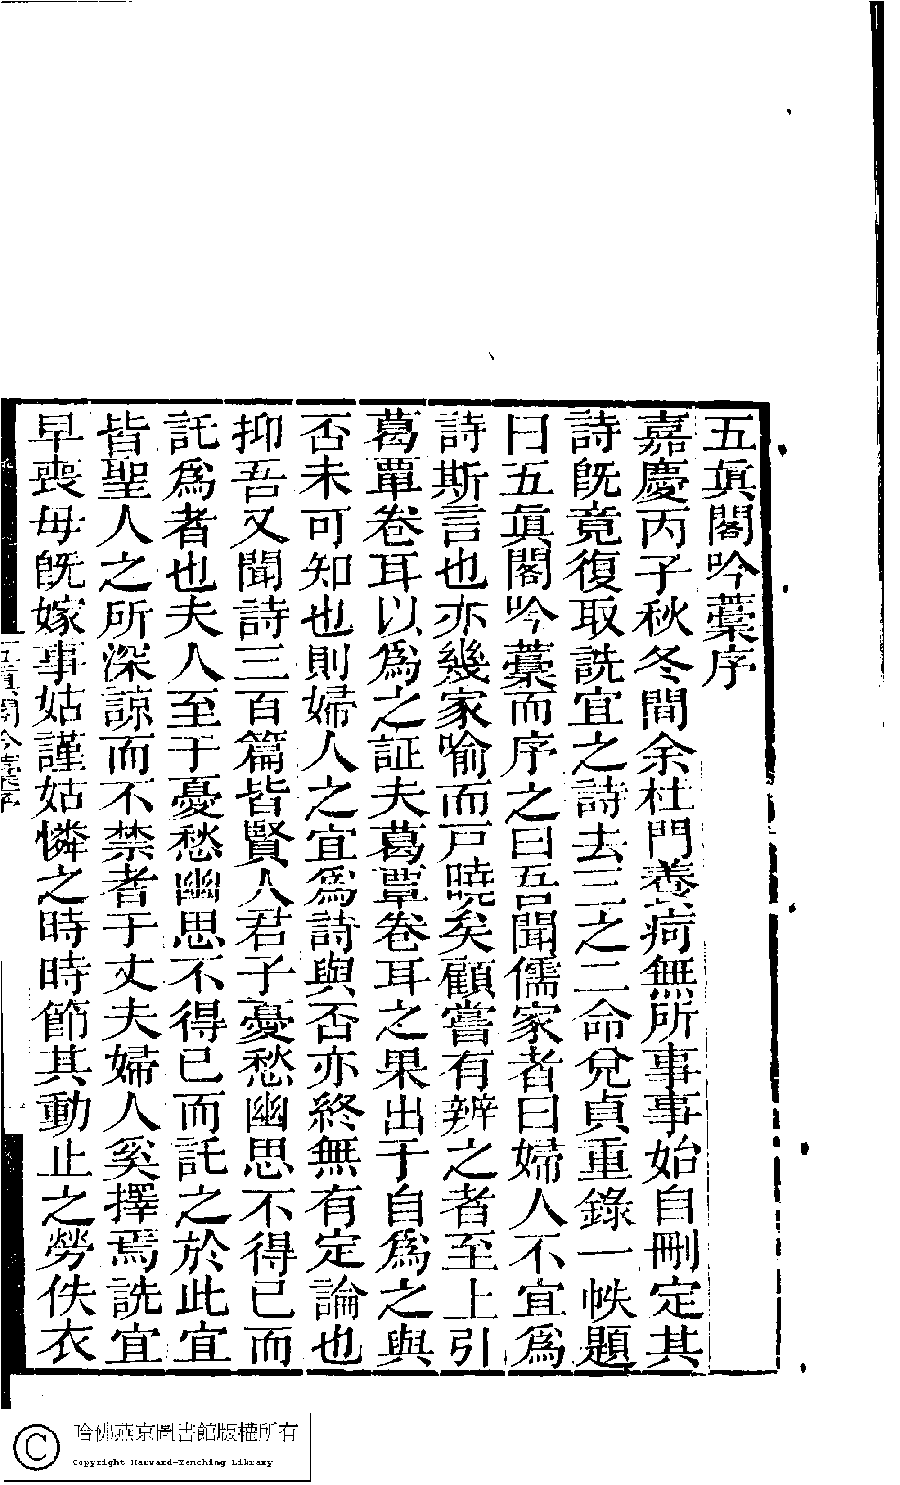 五眞閣吟藁序
嘉慶丙子秋冬間余杜門養疴無所事事始自刪定其
詩旣竟復取詵宜之詩去三之二命兌貞重錄一帙題
曰五眞閣吟藁而序之曰吾聞儒家者曰婦人不宜爲
詩斯言也亦幾家喻而戸曉矣顧嘗有辨之者至上引
葛覃卷耳以爲之証夫葛覃卷耳之果出于自爲之與
否未可知也則婦人之宜爲詩與否亦終無有定論也
抑吾又聞詩三百篇皆賢人君子憂愁幽思不得已而
託爲者也夫人至于憂愁幽思不得已而託之於此宜
皆聖人之所深諒而不禁者于丈夫婦人奚擇焉詵宜
早喪母旣嫁事姑謹姑憐之時時節其動止之勞佚衣
五眞閣吟藁序
哈佛燕京圖書館版權所有
Copyright Harvard-Yenching Library